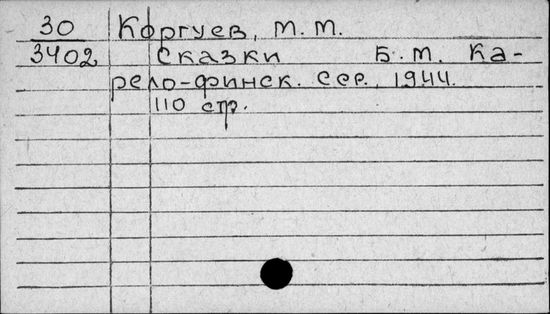 30 Коргуев, М. М.
3402 Сказки Б. М. Ка-
рело-финск. ССР, 1944.
110 стр.